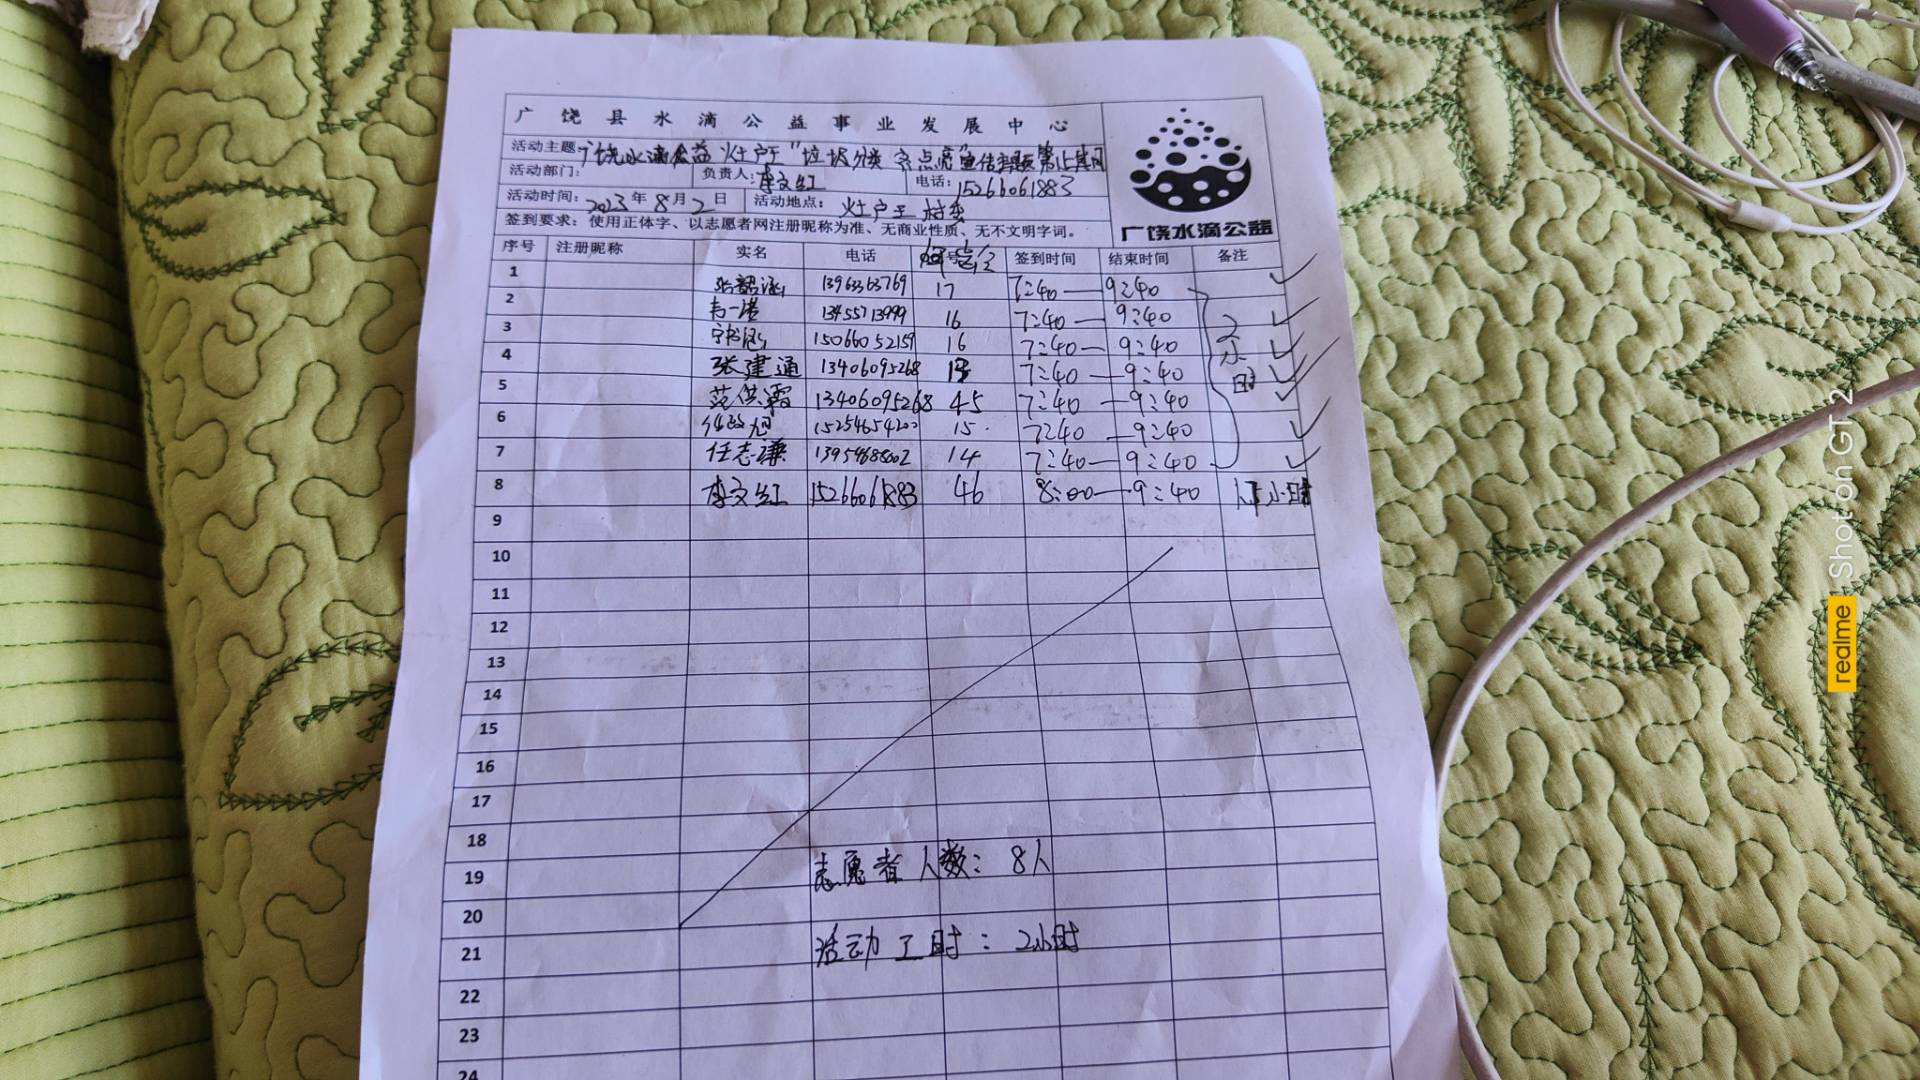 广饶县水滴公益事业发展中心
活动主题: 广饶水滴公益 灶户王"垃圾分类
活动部门: 负责人: 李文红 电话: 15266061883
活动时间: 2023年8月2日 活动地点: 灶户王村委
签到要求: 使用正体字、以志愿者网注册昵称为准、无商业性质、无不文明字词。
广饶水滴公益
序号 注册昵称 实名 电话 签到时间 结束时间 备注
1 13963363769 17 7:40—9:40
2 13455713999 16 7:40—9:40
3 15066052159 16 7:40—9:40
4 张建通 13406095268 7:40—9:40
5 范洪霞 13406095268 45 7:40—9:40
6 15254654222 15 7:40—9:40
7 任志谦 14 7:40—9:40
2小时
8 李文红 15266061883 46 8:00—9:40 小时
9
10
11
12
13
14
15
16
17
18
19
志愿者人数: 8人
20
21
活动工时: 2小时
22
23
24
realme Shot on GT 2